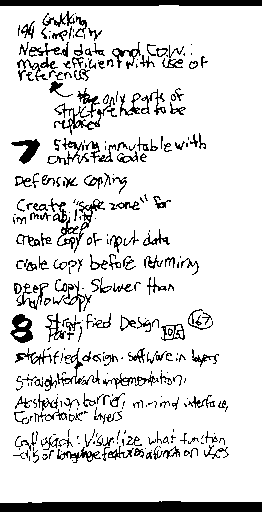 144 Grokking
Simplicity
Nested data and C.o.W.:
made efficient with use of
references
the only parts of
structure need to be
replaced
7 Staying immutable with
untrusted code
Defensive Copying
Create "safe zone" for
immutability.
deep
Create copy of input data
create copy before returning
Deep Copy. Slower than
shallow copy
8 Stratified Design 167
Part 1
stratified design. software in layers
straightforward implementation,
Abstraction barrier, minimal interface,
Comfortable layers
Call graph: Visualize what function
calls or language features a function uses